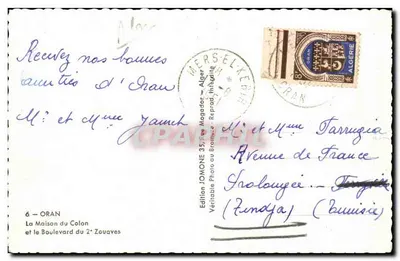 Alger
Recevez nos bonnes
amitiés d'Oran
Mr et Mme
6 - ORAN
La Maison du Colon
et le Boulevard du 2e Zouaves
Edition JOMONE 35, rue Mogador - Alger
Véritable Photo au Bromure - Reprod. Interdite
MERS-EL-KEBIR
ORAN
ALGERIE
Mr et Mme Farrugia
Avenue de France
Prolongée
(Zindja) (Tunisie)